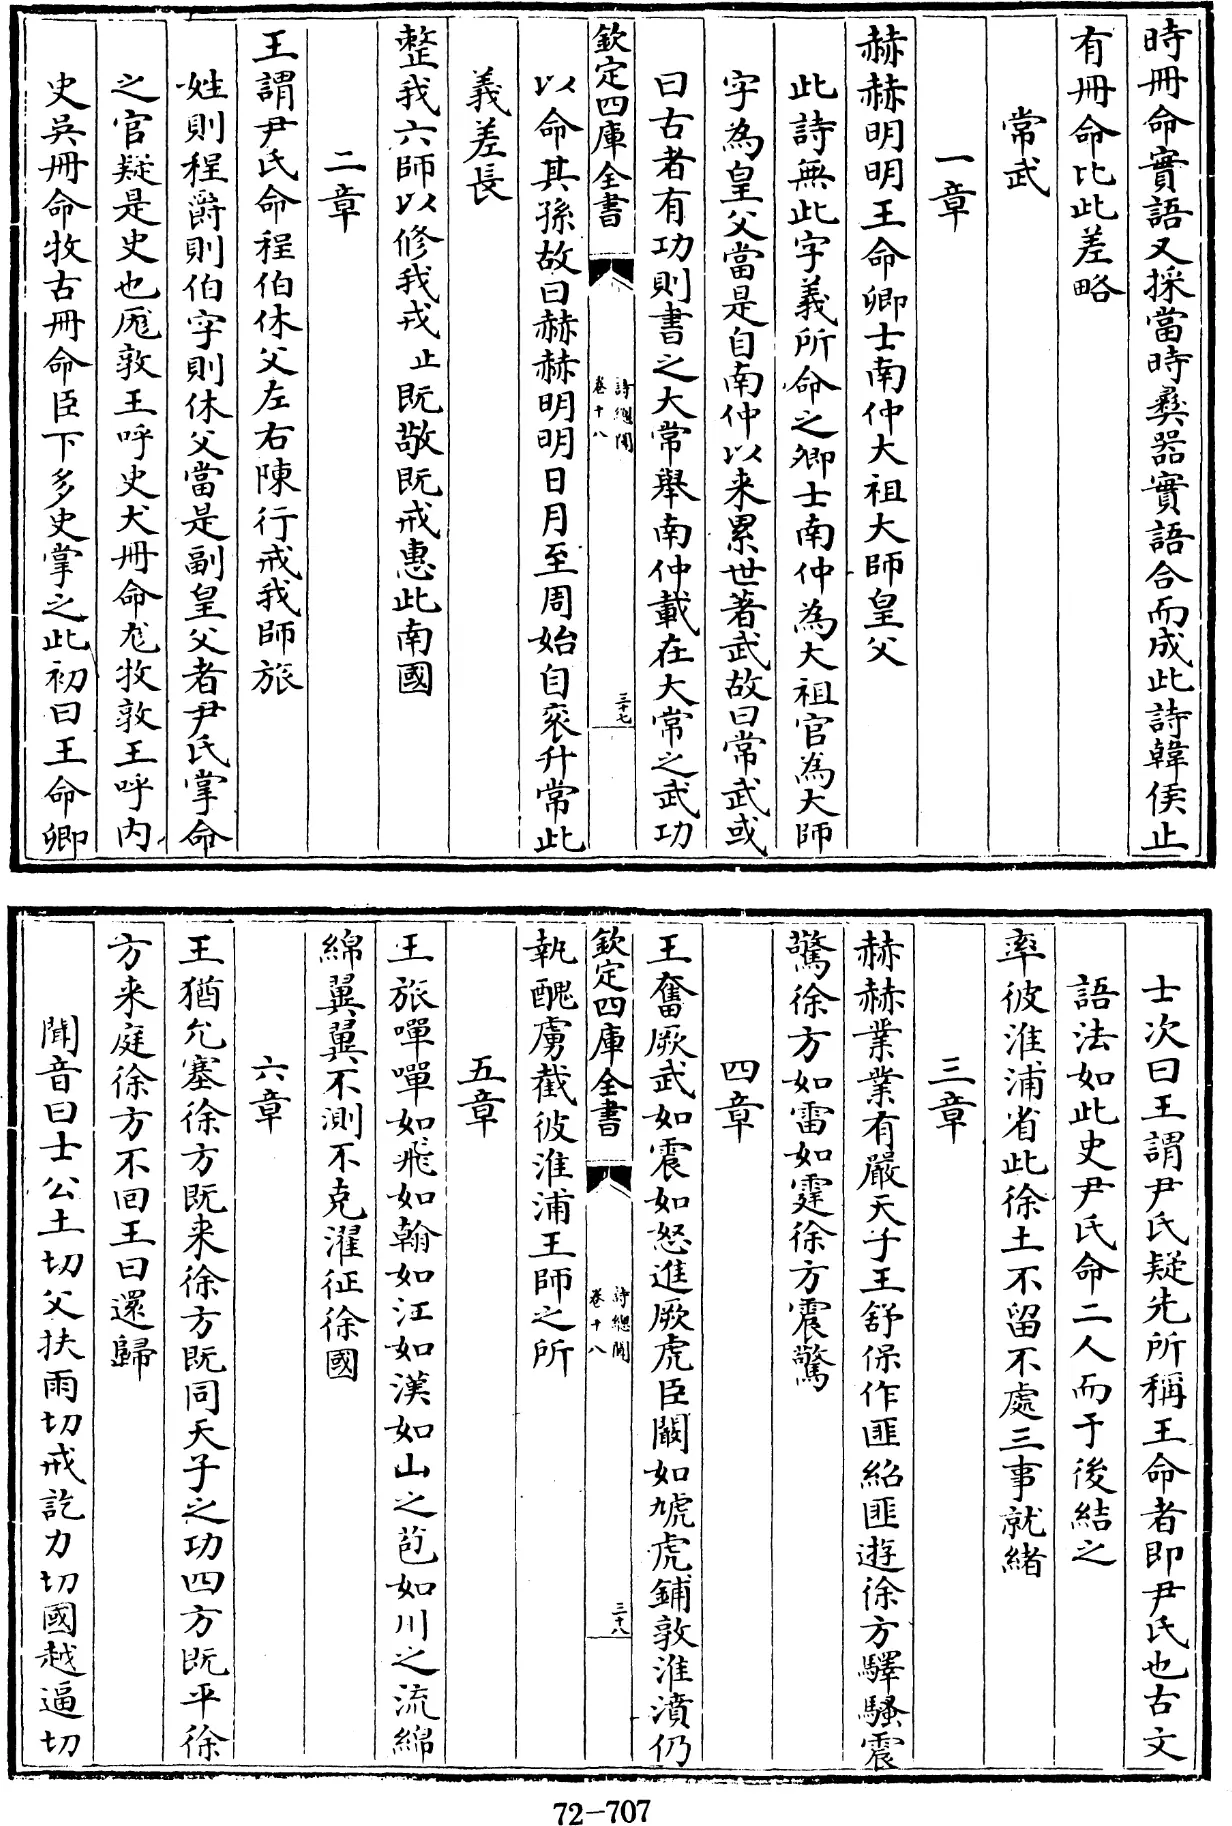 時冊命實語又採當時彜器實語合而成此詩韓侯止
有冊命比此差略
常武
一章
赫赫明明王命卿士南仲大祖大師皇父
此詩無此字義所命之卿士南仲為大祖官為大師
字為皇父當是自南仲以来累世著武故曰常武或
曰古者有功則書之大常舉南仲載在大常之武功
欽定四庫全書
詩總聞
卷十八
三十七
以命其孫故曰赫赫明明日月至周始自衮升常此
義差長
整我六師以修我戎止既敬既戒惠此南國
二章
王謂尹氏命程伯休父左右陳行戒我師旅
姓則程爵則伯字則休父當是副皇父者尹氏掌命
之官疑是史也厖敦王呼史犬冊命尨牧敦王呼内
史吳冊命牧古冊命臣下多史掌之此初曰王命卿
士次曰王謂尹氏疑先所稱王命者即尹氏也古文
語法如此史尹氏命二人而于後結之
率彼淮浦省此徐土不留不處三事就緒
三章
赫赫業業有嚴天子王舒保作匪紹匪遊徐方驛騷震
驚徐方如雷如霆徐方震驚
四章
王奮厥武如震如怒進厥虎臣闞如虓虎鋪敦淮濆仍
欽定四庫全書
詩總聞
卷十八
三十八
執醜虜截彼淮浦王師之所
五章
王旅嘽嘽如飛如翰如江如漢如山之苞如川之流綿
綿翼翼不測不克濯征徐國
六章
王猶允塞徐方既来徐方既同天子之功四方既平徐
方来庭徐方不回王曰還歸
聞音曰士公土切父扶雨切戒訖力切國越逼切
72-707